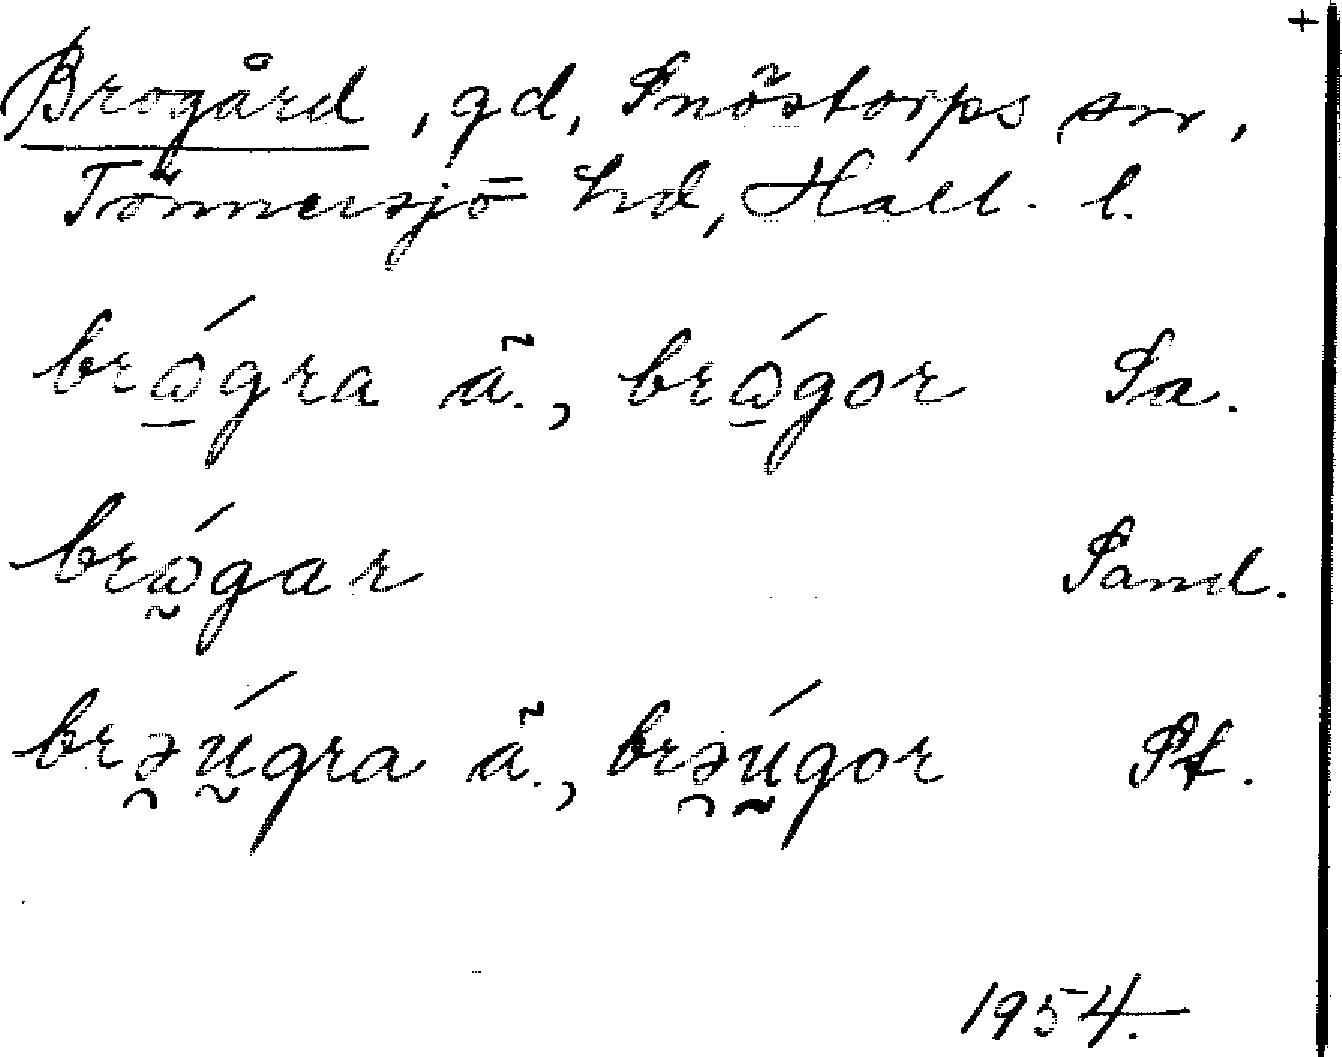 +
Brogård, gd, Snöstorps sn,
Tönnersjö hd, Hall. l.
brώ̱gra ä., brώ̱gor Sn.
brώ̰gar Sand.
brə̯ṵ́gra ä., brə̯ṵ́gor St.
1954.